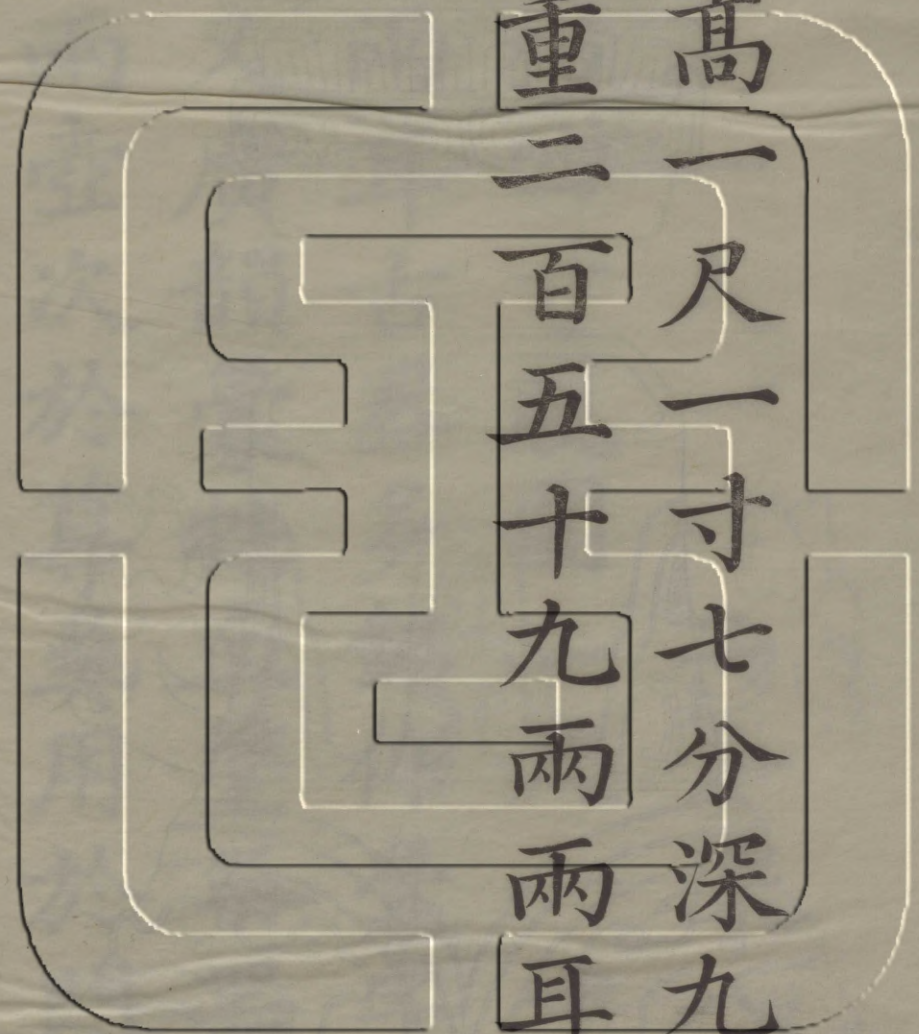 髙一尺一寸七分深九
重二百五十九兩兩耳